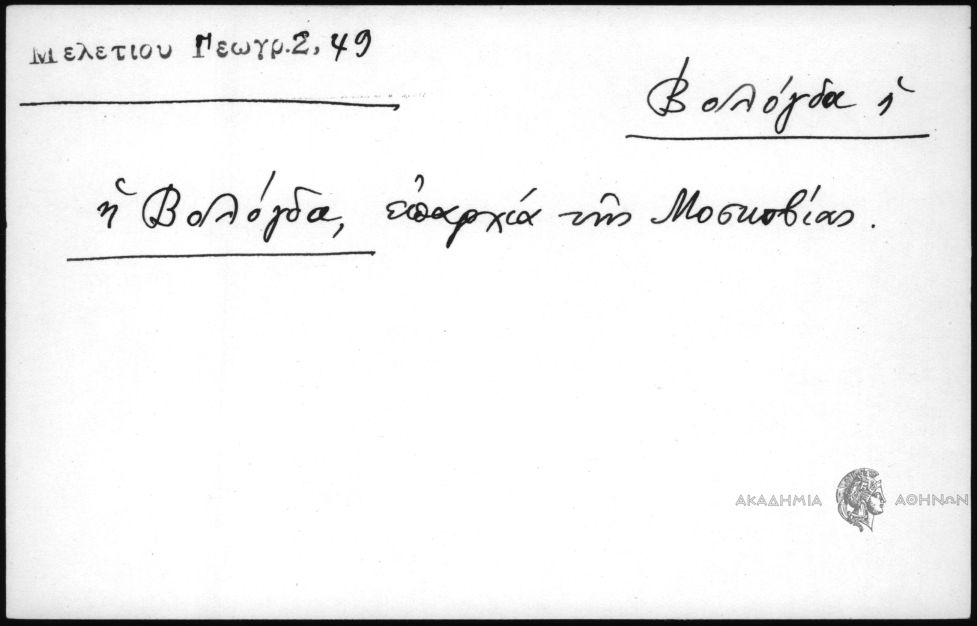 Μελετίου Γεωγρ. 2, 49
Βολόγδα ἡ
ἡ Βολόγδα, ἐπαρχία τῆς Μοσκοβίας.
ΑΚΑΔΗΜΙΑ ΑΘΗΝΩΝ